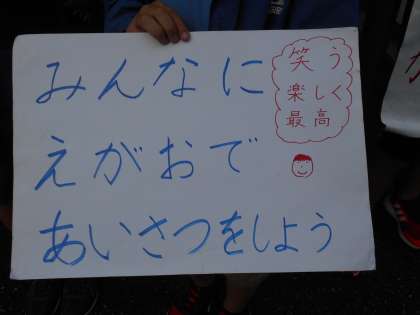 みんなに
えがおで
あいさつをしよう
笑う
楽しく
最高